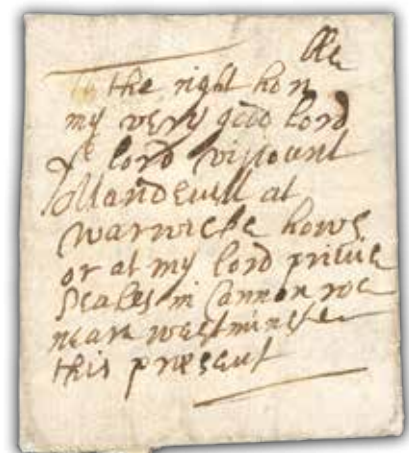 To the right hon ble
my very good lord
ye lord viscount
Mandevill at
warwicke hows
or at my lord privie
Seales in Cannon roe
near westminster
this present